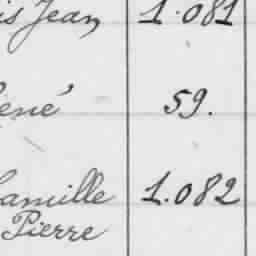 is Jean 1.081
ené 59.
amille 1.082
Pierre